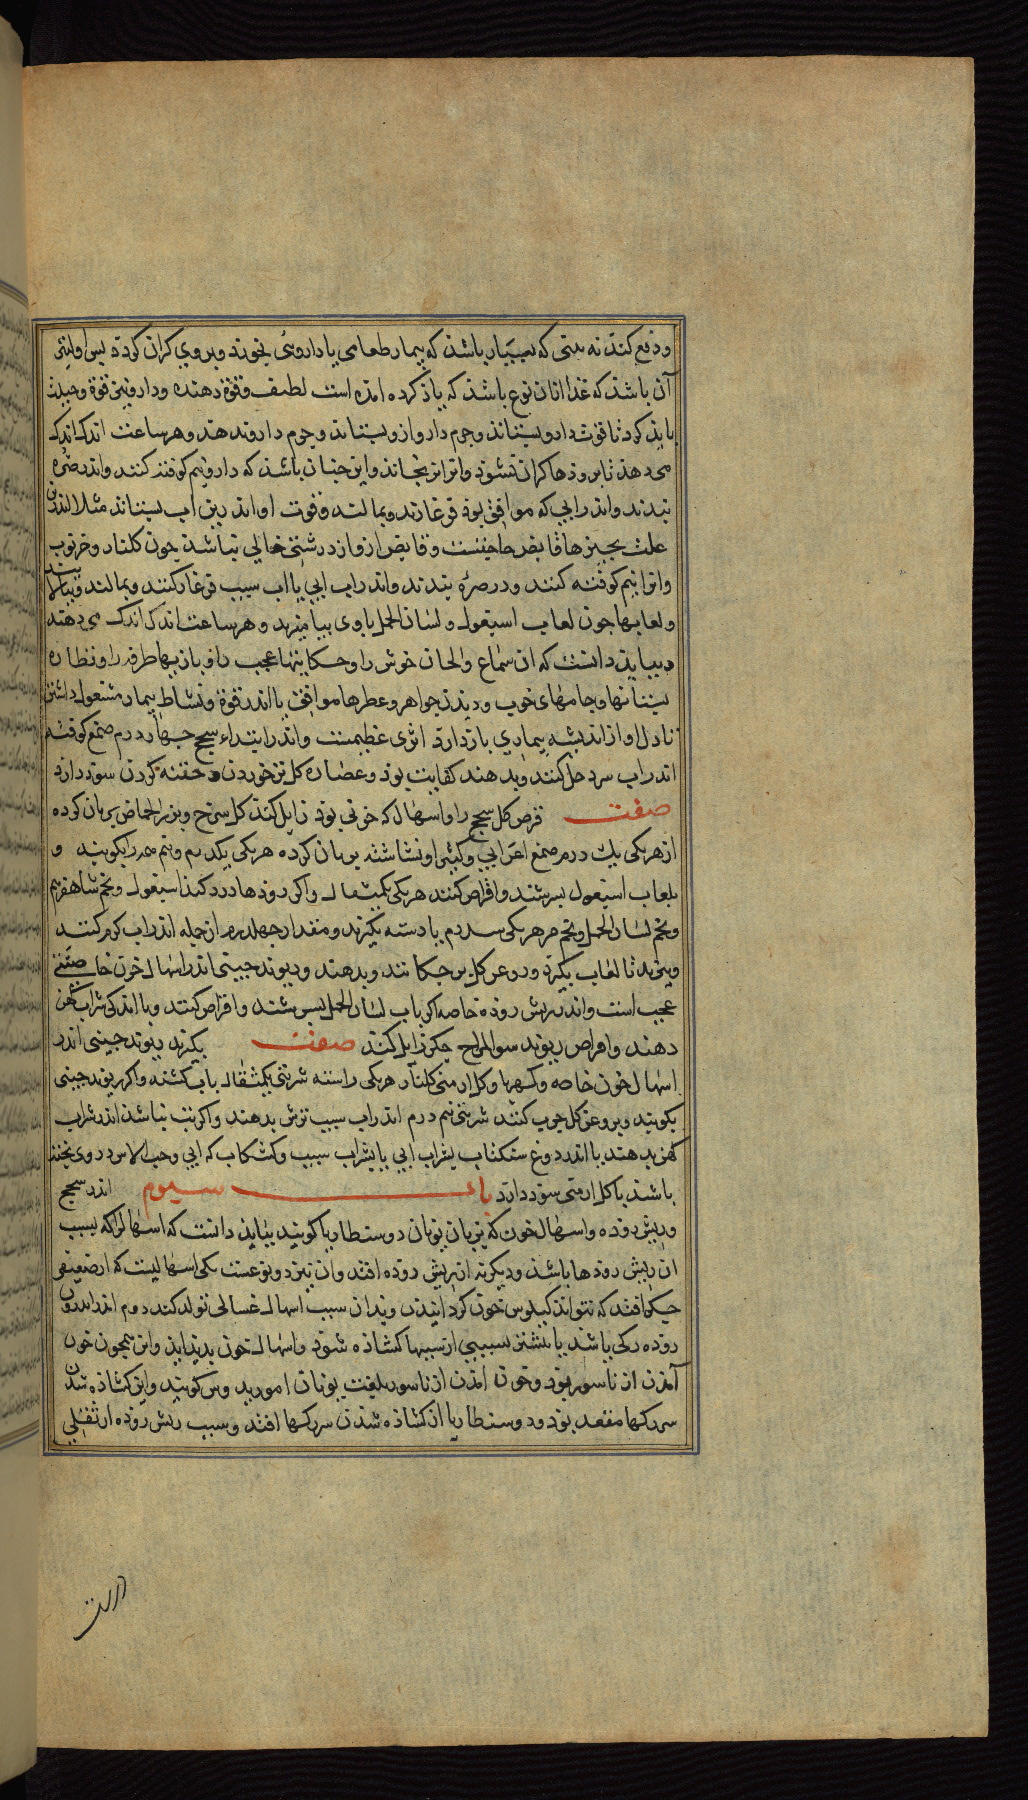 ودفع کند نه مدتی که بسیار باشد که بیمار طعامی یا داروئی بخورد و بروی کران کردد پس اولیتر
آن باشد که غذا ازان نوع باشد که یاذ کرده امده است لطیف و قوة دهنده و دارو نیز قوة وحیلت
باید کرد تا قوت دارو بستانند وجرم دارو ازو بستاند وجرم دارو ندهند وهر ساعت اندک اندک
می دهند تا برودها کران نشود واترا نرنجاند واین چنان باشد که دارو نیم کوفته کنند واندر صره
بندند واندر ابی که موافق بوذ فرغارند وبمالند وقوت او اندرین اب بستانند مثلا اندرین
علت بچیزهاء قابض حاجتست وقابض ازو از درشتی خالی نباشد چون کلنار وخرنوب
وانرا نیم کوفته کنند ودر صره بندند واندر اب ابی یا اب سیب فرغار کنند وبمالند وبپالایند
ولعابها چون لعاب اسبغول ولسان الحمل باوی بیامیزند وهر ساعت اندک اندک می دهند
وبباید دانست که ان سماع والحان خوش را وحکایتهاء عجب را وبازیهاء طرفه را ونظاره
بستانها وجامهای خوب ودیدن جواهر وعطرهاء موافق یا اندر قوة ونشاط بیمار مشغول داشتن
تا دل او از اندیشه بیماری باز دارد اثری عظیمست واندر ابتداء سحج چهار درم صمغ کوفته
اندر اب سرد حل کنند وبدهند کفایت بوذ وعصاره کل تر خوردن و حقنه کردن سود دارد
صفت قرص کل سحج را واسهال که خونی بوذ زایل کند کل سرخ وبزر الحماض بریان کرده
از هریکی یک درم صمغ اعرابی وکتیرا ونشاشته بریان کرده هریکی یکدرم ونیم همه را بکوبند و
بلعاب اسبغول بسرشند واقراص کنند هریکی یکمثقال واکر رودها درد کند اسبغول وتخم شاهفرم
وتخم لسان الحمل وتخم مر هریکی سه درم یا دسته بکیرند ومقدار چهار درم ازجمله اندر اب کرم کنند
وبزنند تا لعاب بکیرد وروغن کل بر چکانند وبدهند وریوند چینی اندر اسهال خون خاصیتی
عجب است واندر ریش روده خاصه اکر باب لسان الحمل بسرشند واقراص کنند وبا اندکی شراب کهن
دهند واقراص ریوند سوالمزاج جکر زایل کند صفت بکیرند ریوند چینی اندر
اسهال خون خاصه وکهربا وکل ارمنی کلنار هریکی راسته شربتی یکمثقال باب کشنه واکر ریوند چینی
بکوبند وبروغن کل چرب کنند شربتی نیم درم اندر اب سیب ترش بدهند واکر تب نباشد اندر شراب
کهن بدهند یا اندر دوغ ستکتاب بشراب ابی یا بشراب سیب وکشکاب که ابی وحب الاس دروی پخته
باشند با کل ارمنی سود دارد باب سیوم اندر سحج
وریش روده واسهال خون که بزبان یونان دوسنطاریا کویند بباید دانست که اسهال را که بسبب
ان ریش رودها باشد ودیکر نه از ریش روده افتد وان نیز دو نوعست یکی اسهالیست که از ضعیفی
جکر افتد که نتواند کیلوس خون کردانیدن وبدان سبب اسهال غسالی تولد کند دوم اندر اندرون
روده رکی باشد یا بیشتر بسببی از سببها کشاده شود واسهال خون بدید اید واین همچون خون
آمدن از ناسور بوذ وخون امدن از ناسور بلغت یونان امورید وس کویند واین کشاده شدن
سر رکهاء مقعد بوذ ودوسنطاریا از کشاده شدن سر رکها افتد وسبب ریش روده از ثفلی